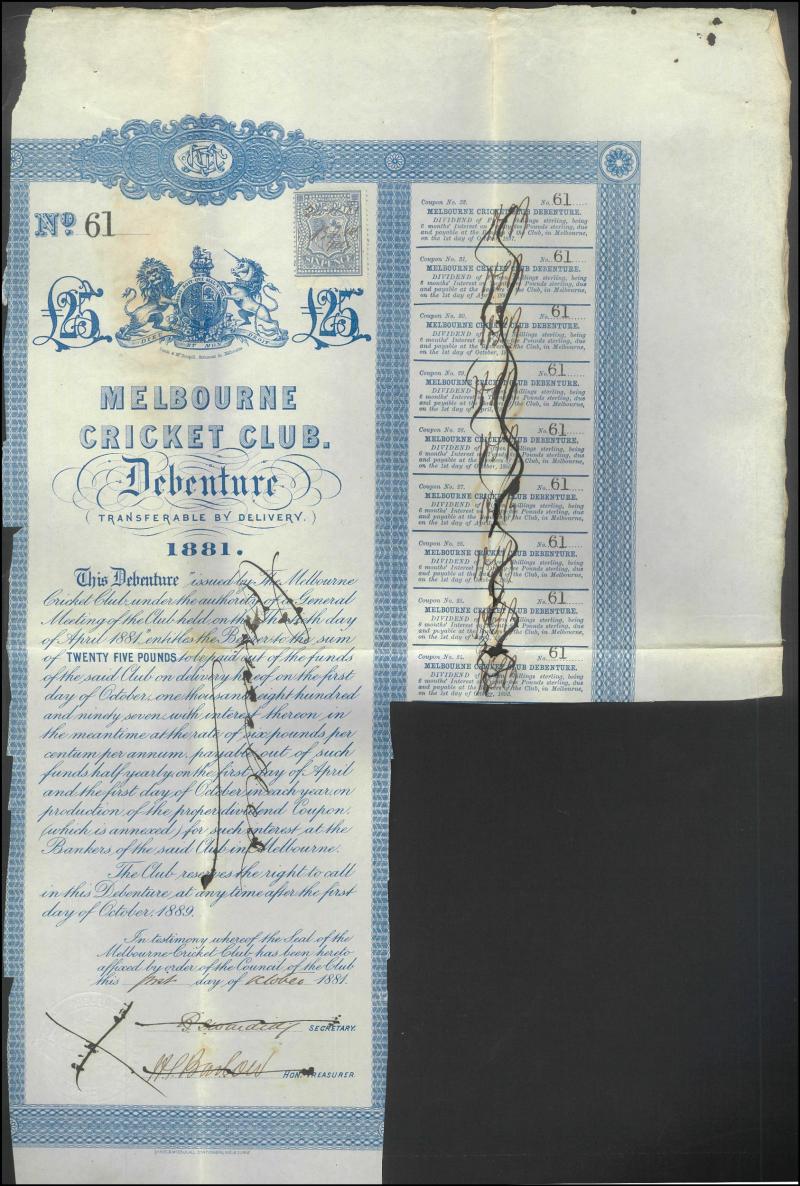 Nº 61
£25.
£25
SIXPENCE
DIEU ET MON DROIT
MELBOURNE
CRICKET CLUB.
Debenture
(TRANSFERABLE BY DELIVERY.)
1881.
This Debenture "issued by The Melbourne
Cricket Club, under the authority of a General
Meeting of the Club held on the day
of April 1881" entitles the Bearer to the sum
of TWENTY FIVE POUNDS to be paid out of the funds
of the said Club on delivery hereof on the first
day of October, one thousand eight hundred
and ninety seven, with interest thereon in
the meantime at the rate of six pounds per
centum per annum, payable out of such
funds half yearly, on the first day of April
and the first day of October in each year, on
production of the proper dividend Coupon,
(which is annexed) for such interest at the
Bankers of the said Club in Melbourne.
The Club reserves the right to call
in this Debenture at any time after the first
day of October, 1889.
In testimony whereof the Seal of the
Melbourne Cricket Club has been hereto
affixed by order of the Council of the Club
this first day of October 1881.
SECRETARY.
Barlow HON. TREASURER.
Coupon No. 32. No. 61
MELBOURNE CRICKET CLUB DEBENTURE.
DIVIDEND of Fifteen Shillings sterling, being
6 months' Interest on Twenty-five Pounds sterling, due
and payable at the Bankers of the Club, in Melbourne,
on the 1st day of October, 1897.
Coupon No. 31. No. 61
MELBOURNE CRICKET CLUB DEBENTURE.
DIVIDEND of Fifteen Shillings sterling, being
6 months' Interest on Twenty-five Pounds sterling, due
and payable at the Bankers of the Club, in Melbourne,
on the 1st day of April,
Coupon No. 30. No. 61
MELBOURNE CRICKET CLUB DEBENTURE.
DIVIDEND of Fifteen Shillings sterling, being
6 months' Interest on Twenty-five Pounds sterling, due
and payable at the Bankers of the Club, in Melbourne,
on the 1st day of October,
Coupon No. 29. No. 61
MELBOURNE CRICKET CLUB DEBENTURE.
DIVIDEND of Fifteen Shillings sterling, being
6 months' Interest on Twenty-five Pounds sterling, due
and payable at the Bankers of the Club, in Melbourne,
on the 1st day of April,
Coupon No. 28. No. 61
MELBOURNE CRICKET CLUB DEBENTURE.
DIVIDEND of Fifteen Shillings sterling, being
6 months' Interest on Twenty-five Pounds sterling, due
and payable at the Bankers of the Club, in Melbourne,
on the 1st day of October,
Coupon No. 27. No. 61
MELBOURNE CRICKET CLUB DEBENTURE.
DIVIDEND of Fifteen Shillings sterling, being
6 months' Interest on Twenty-five Pounds sterling, due
and payable at the Bankers of the Club, in Melbourne,
on the 1st day of April,
Coupon No. 26. No. 61
MELBOURNE CRICKET CLUB DEBENTURE.
DIVIDEND of Fifteen Shillings sterling, being
6 months' Interest on Twenty-five Pounds sterling, due
and payable at the Bankers of the Club, in Melbourne,
on the 1st day of October,
Coupon No. 25. No. 61
MELBOURNE CRICKET CLUB DEBENTURE.
DIVIDEND of Fifteen Shillings sterling, being
6 months' Interest on Twenty-five Pounds sterling, due
and payable at the Bankers of the Club, in Melbourne,
on the 1st day of April,
Coupon No. 24. No. 61
MELBOURNE CRICKET CLUB DEBENTURE.
DIVIDEND of Fifteen Shillings sterling, being
6 months' Interest on Twenty-five Pounds sterling, due
and payable at the Bankers of the Club, in Melbourne,
on the 1st day of October, 1893.